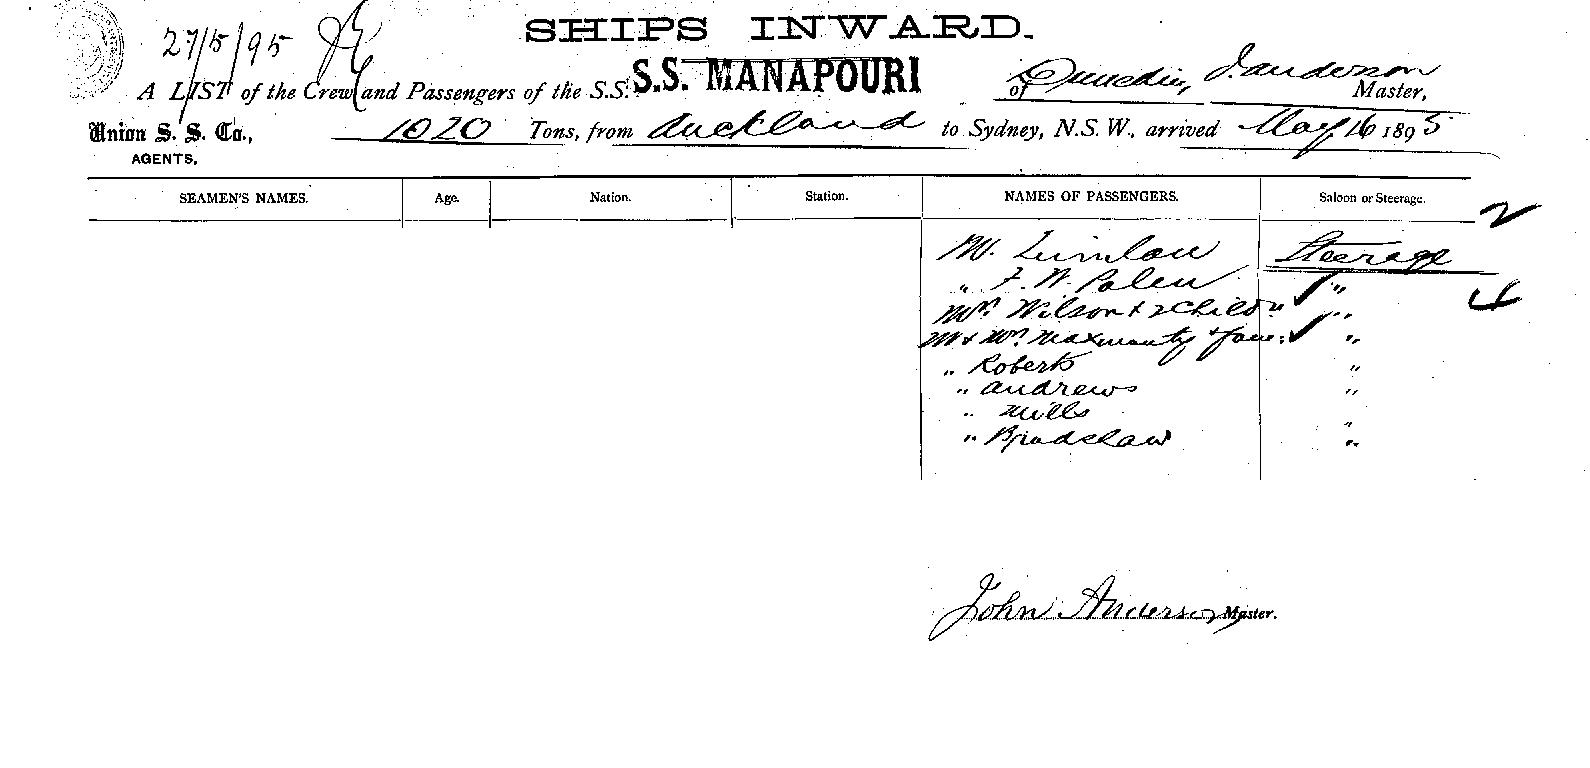 SHIPS INWARD.
27/5/95
A LIST of the Crew and Passengers of the S.S. S.S. MANAPOURI of Dunedin, J. Anderson Master,
Union S. S. Co., 1020 Tons, from Auckland to Sydney, N.S.W., arrived May 16 1895
AGENTS.
SEAMEN'S NAMES. Age. Nation. Station. NAMES OF PASSENGERS. Saloon or Steerage.
2
M. Steerage
" F. W. Palen "
4
Mrs Wilson & 2 Child " "
M & Mrs & fam: "
" Roberts "
" Andrews "
" Mills "
" Bradshaw "
John Anderson Master.